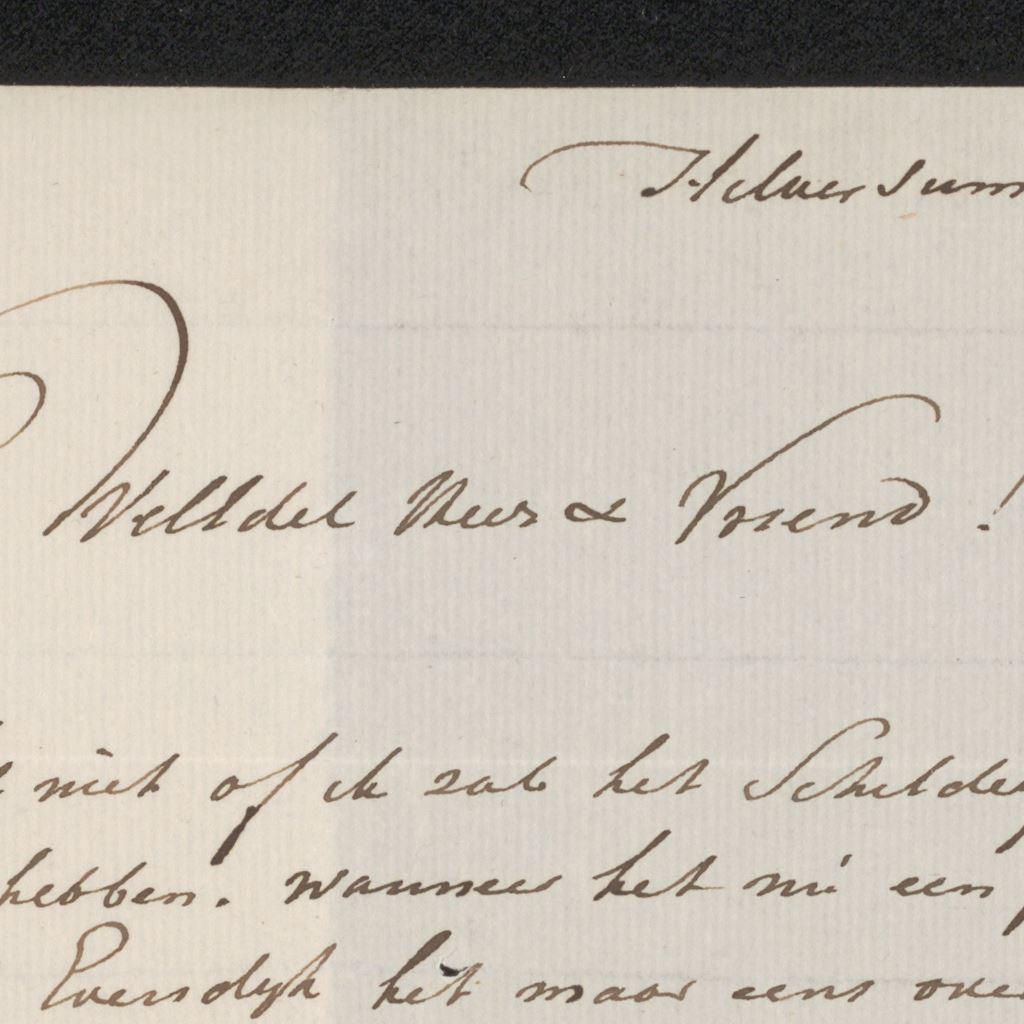 Hilversum
WelEdel Heer & Vriend !
niet of ik zal het Schilde
hebben. wanneer het nu een
Eversdyk het maar eens ove